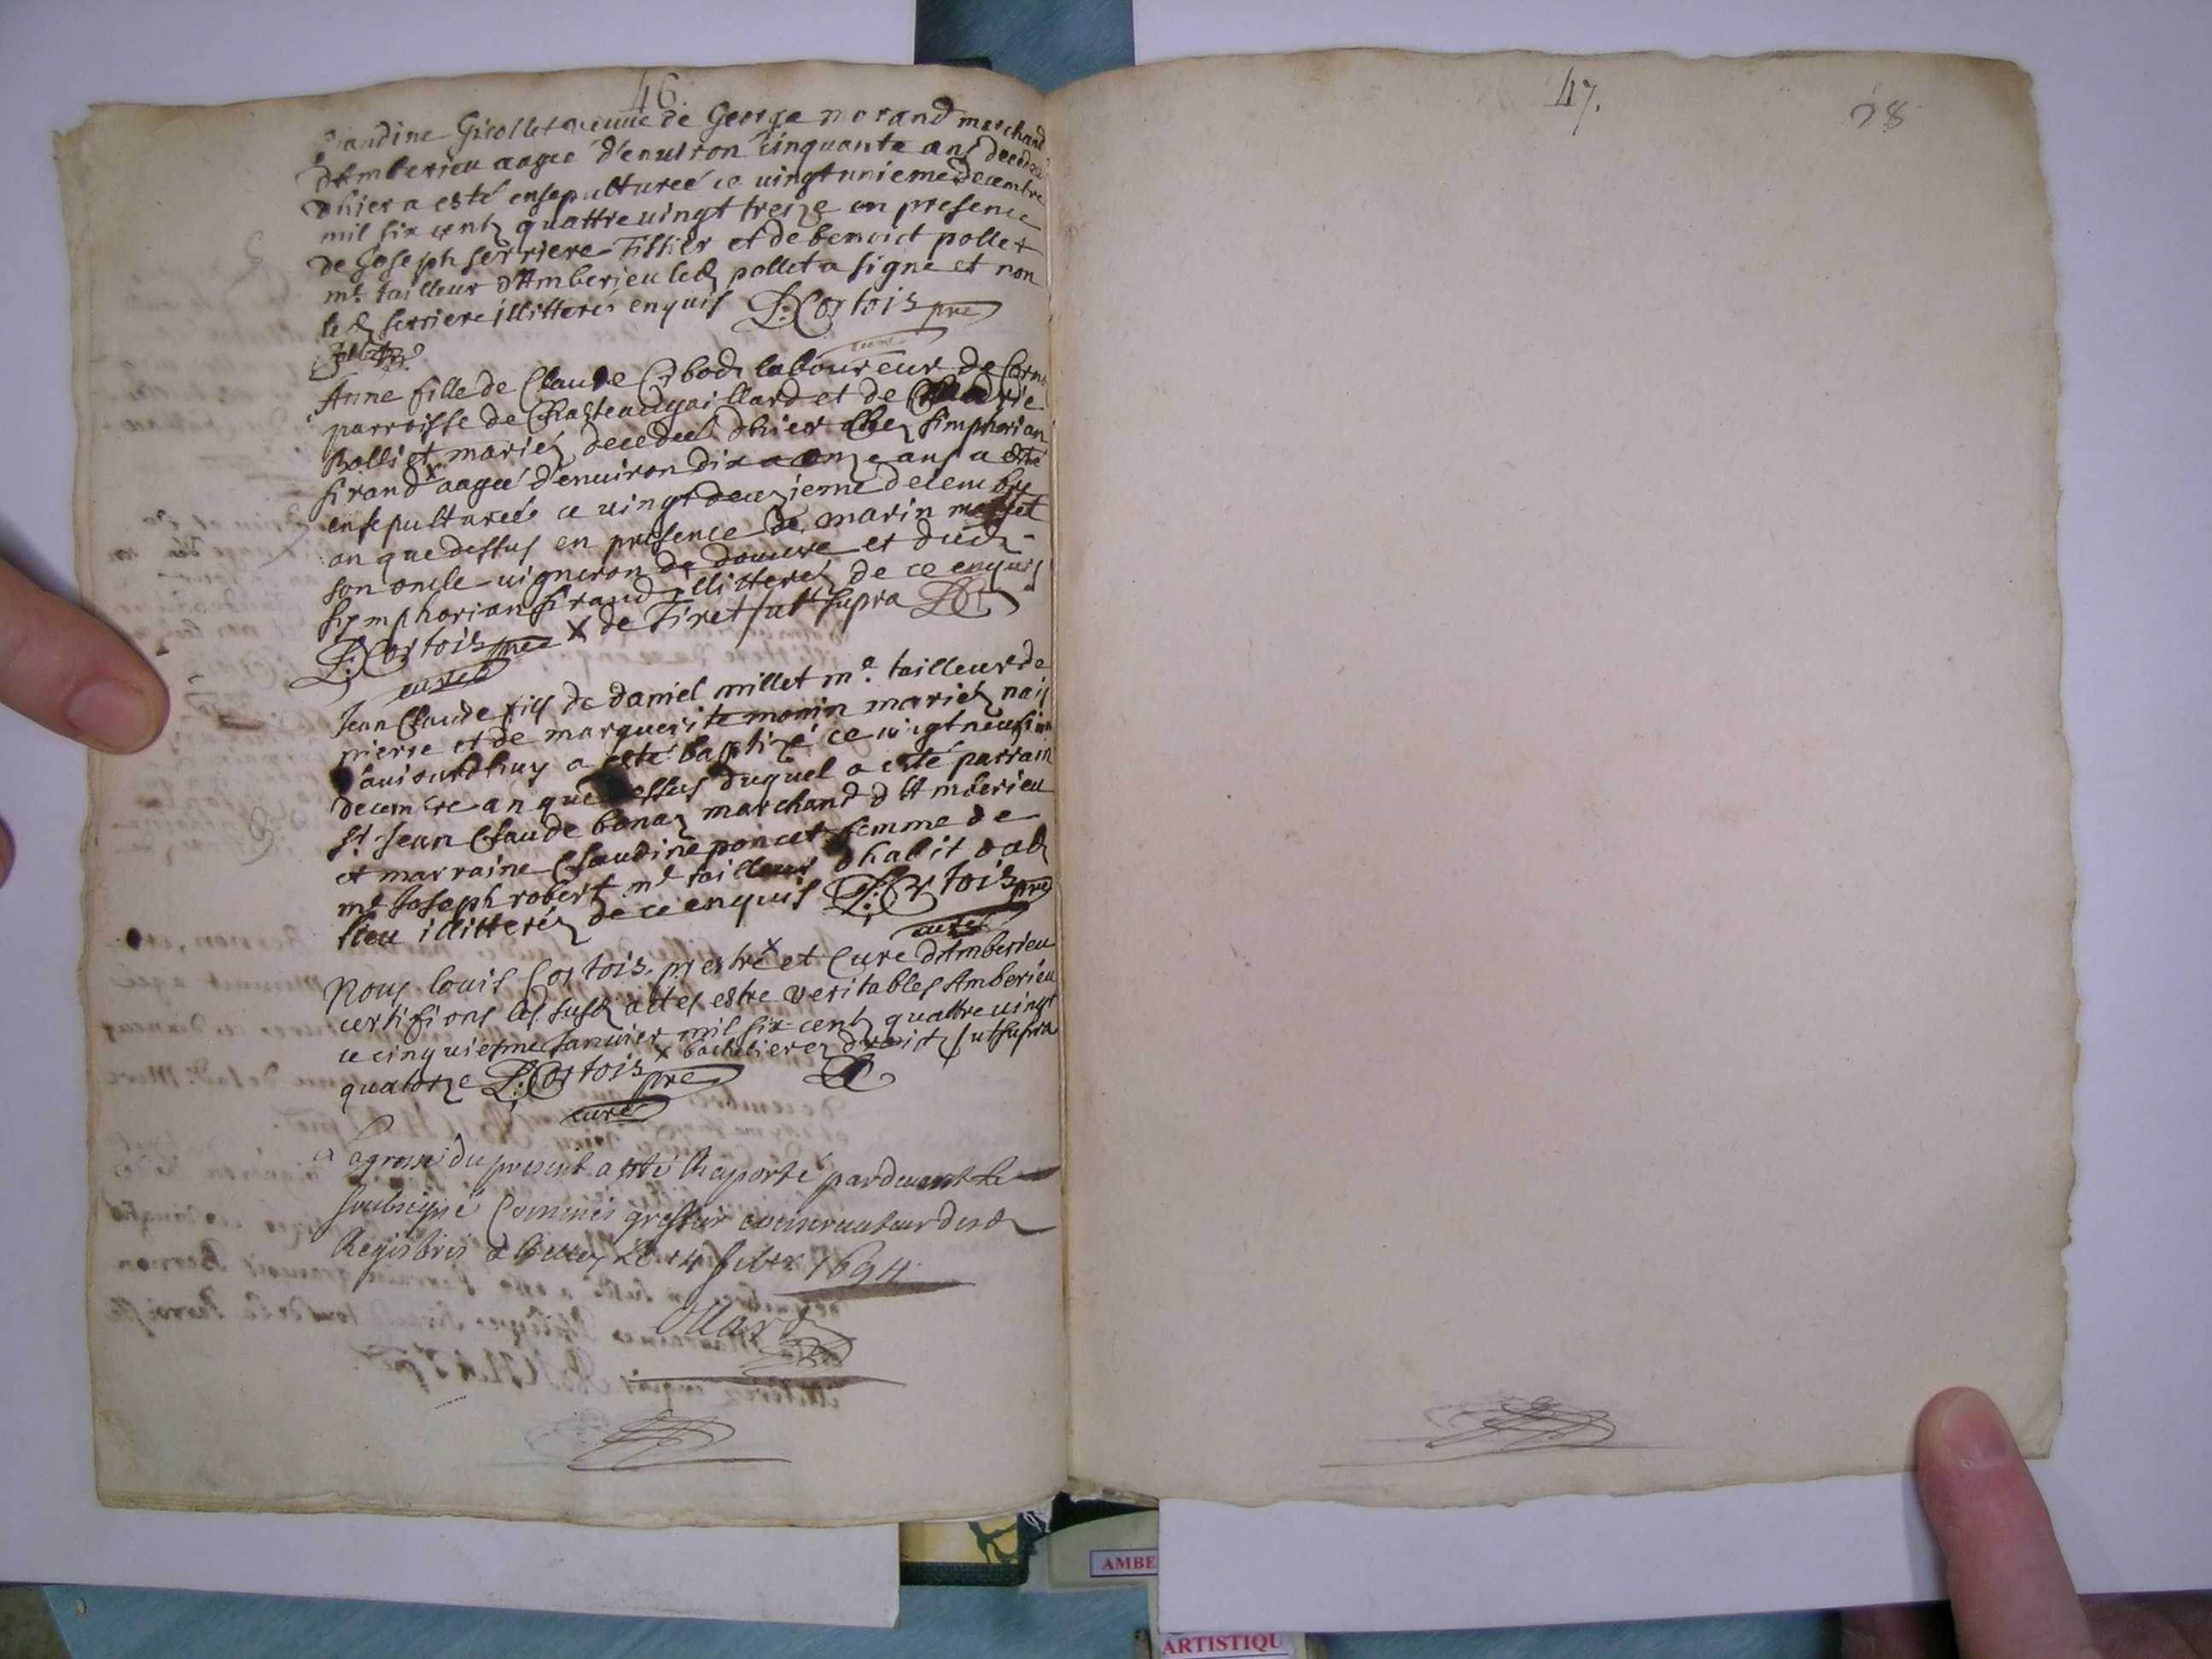 46.
Claudine Gicollet veuue de George morand marchand
d'Amberieu aagee d'enuiron cinquante ans decedee
dhier a esté ensepulturee ce uingtunieme decembre
mil six centz quattre uingt treize en presence
de Joseph serriere Tissier et de benoict pollet
me tailleur d'Amberieu led pollet a signe et non
led serriere illitteré enquis L: Cortois pre
curé
Anne fille de Claude laboureur de
parroisse de Chasteaugaillard et de Marie
Rolliet mariez decedee dhier chez simphorian
sirand x aagee d'enuiron dix a onze ans a esté
ensepulturee ce uingt deuzieme decembre
an que dessus en presence de marin
son oncle uigneron de douure et dud
symphorian sirand illitterez de ce enquis
L: Cortois pre x de Tiret / ut supra LC
curé
Jean Claude fils de daniel millet me tailleur de
pierre et de marguerite monin mariez nais
d'auiourdhuy a esté baptizé ce uingtneufieme
decembre an que dessus duquel a esté parrain
Sr Jean Claude bonaz marchand d'Amberieu
et marraine Claudine poncet femme de
me Joseph robert me tailleur dhabit dud
lieu illitterez de ce enquis L: Cortois pre
curé
Nous louis Cortois prestre x et Curé d'Amberieu
certifions les susd actes estre veritables Amberieu
ce cinquiesme Januier mil six centz quattre uingt
quatorze L: Cortois pre x bachelier ez droict / ut supra
curé LC
La grosse du present a esté Raporté pardeuant le
soubsigné Commis greffier conseruateur desd
Registres a Belley le 14 feber 1694
47.
28
AMBE
ARTISTIQU